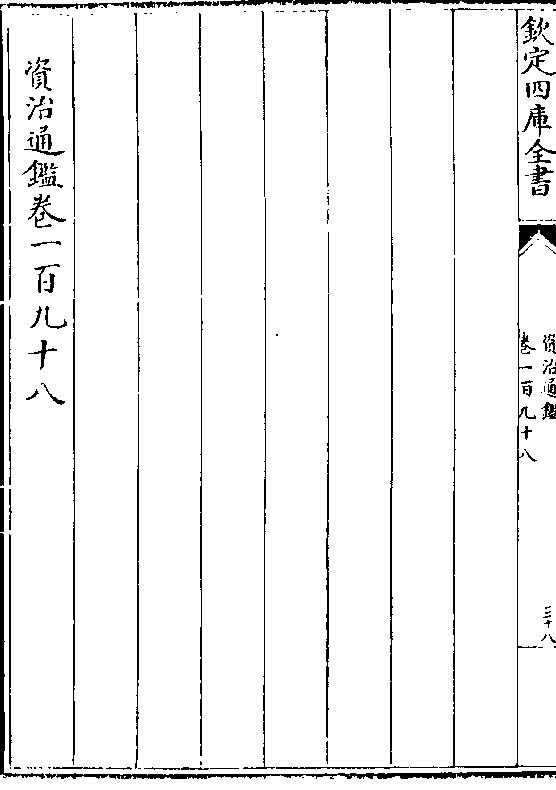 欽定四庫全書
資治通鑑
卷一百九十八
三十八
資治通鑑卷一百九十八